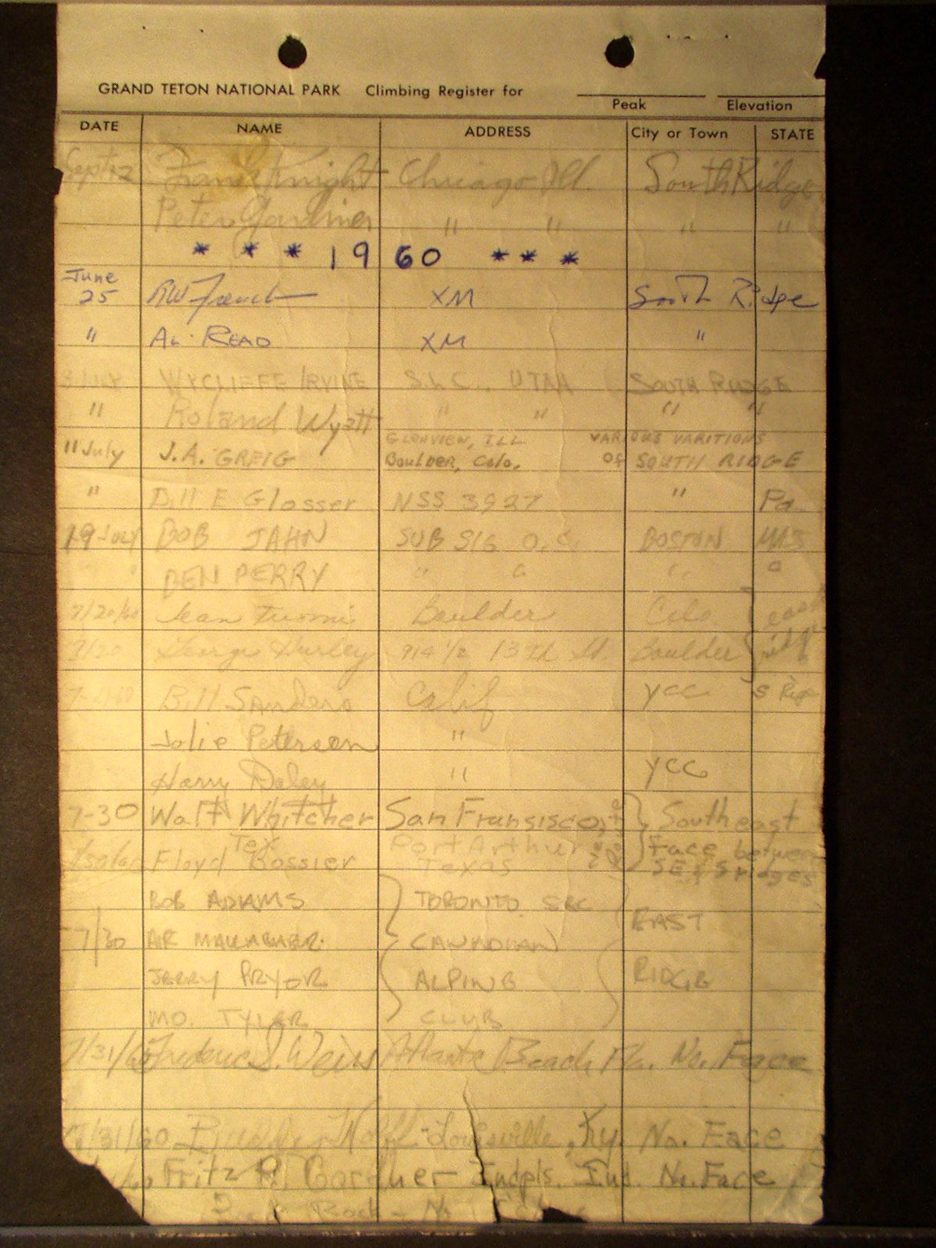 GRAND TETON NATIONAL PARK Climbing Register for
Peak Elevation
DATE NAME ADDRESS City or Town STATE
Sept 12 Frank Knight Chicago Ill. South Ridge
Peter Gardiner " " " "
* * * 1960 * * *
June 25 RW French XM South Ridge
" Al Read XM "
WYCLIFFE IRVINE S.L.C., UTAH SOUTH RIDGE
" Roland Wyatt " " " "
11 July J.A. GREIG GLENVIEW, ILL Boulder, Colo. VARIOUS VARITIONS OF SOUTH RIDGE
" Bill E Glosser NSS 3927 " Pa.
19 July BOB JAHN SUB SIG O.C. BOSTON MAS
" BEN PERRY " " " "
7/20/60 Jean Boulder Colo. east
7/20 George Hurley 914 1/2 13th St. Boulder ridge
Bill Sanders Calif YCC S Rige
Jolie Peterson "
Harry Daley " YCC
7-30 Walt Whitcher San Fransisco, } Southeast
7/30/60 Floyd Tex Bossier Port Arthur Texas } Face between SE & S ridges
BOB ADAMS TORONTO SEC
7/30 CANADIAN EAST
JERRY PRYOR ALPINE RIDGE
MO. TYLER CLUB
7/31/60 Weiss Atlantic Beach Fla. No. Face
7/31/60 Wolff - Louisville, Ky. No. Face
Fritz R. Gardner - Indpls. Ind. No. Face